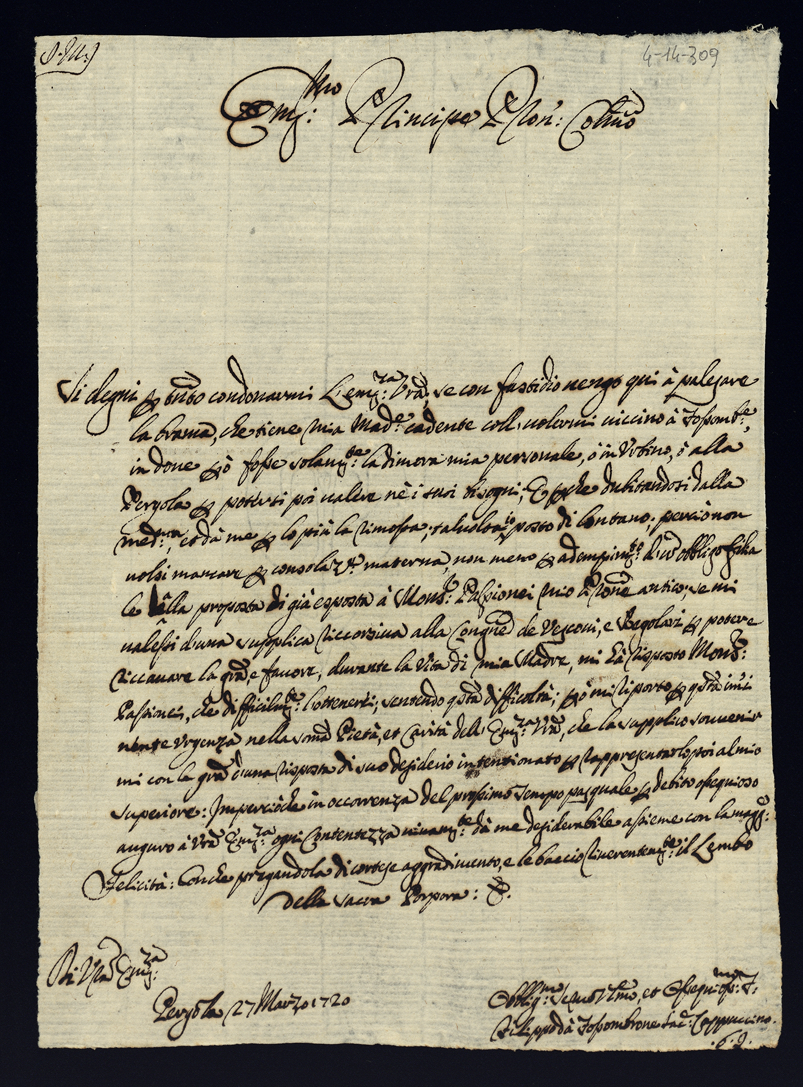 4-14-309
Em:mo Principe Pron: Colmo
Si degni tanto condonarmi L'em:za Vra, se con fastidio vengo qui à palesare
la brama, che tiene mia Made cadente coll volermi vicino à Fossombe,
in done ò fosse solamte la dimora mia personale, ò in Urbino, ò alla
Pergola potersi poi valere nè i suoi bisogni; E dubitandosi dalla
medma, et dà me la rimossa, posto di lontano, perciò non
volsi mancare consola:ne materna, non meno adempimto obbligo
le alla proposta di già esposta à Monsr Passionei mio Prone antico: se mi
valessi d'una supplica riccorsiva alla Congrne de Vescovi, e Regolari potere
riccavare la gra e favore, durante la Vita di mia Madre, mi hà risposto Monsr:
Passionei, che difficilmte l'ottenerei; sentendo qsta difficoltà; mi riporto qsta
nente urgenza nella soma Pietà, et Carità dell' Em:za Vra, che la supplico sovvenir
mi con la gra d'una risposta di suo desiderio intentionato rappresentarlo poi al mio
superiore: Impercioche in occorrenza del prossimo tempo pasquale debito ossequioso
auguro à Vra Em:za ogni Contentezza vivamte dà me desiderabile assieme con la magg:
Felicità: Conche pregandola di cortese aggradimento, e le baccio riverentemte il Lembo
della sacra Porpora:
Di Vra Em:za
Pergola 27 Marzo 1720
Obblig:mo Servo Vmo, et Ossequi:mo F:
Filippo dà Fossombrone Sac: Cappuccino.